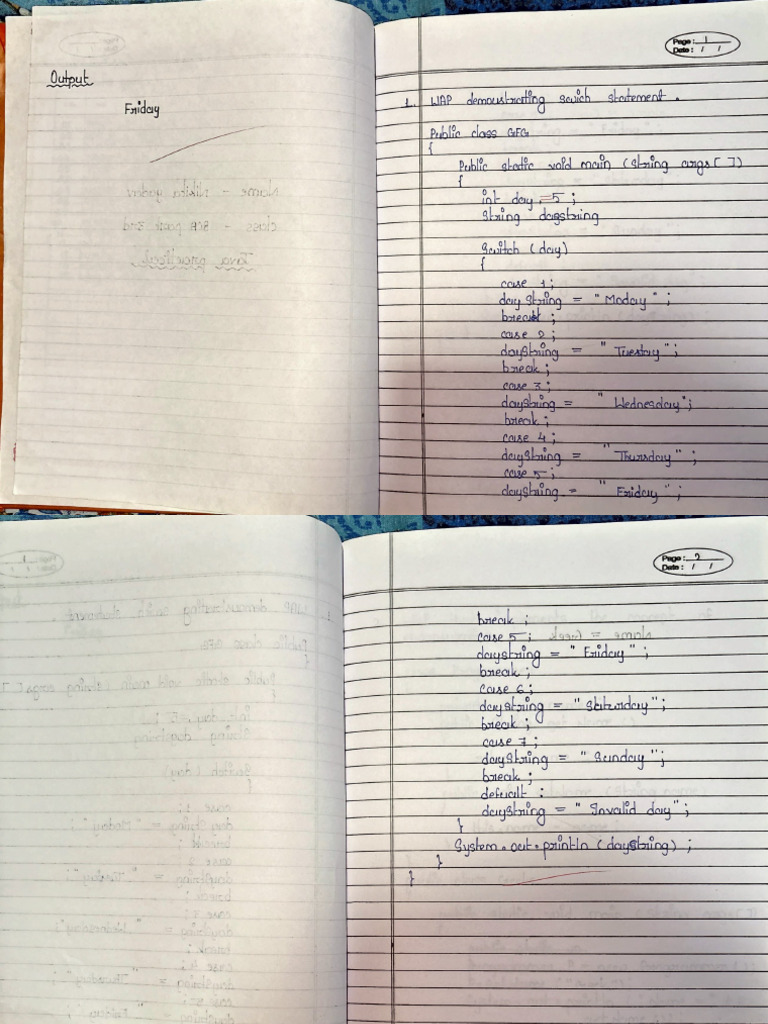 Output
Friday
Page: 1
Date: / /
1. WAP demoustrating swich statement.
Public class GFG
{
Public static void main (string args[ ])
{
int day =5 ;
String daystring
Switch (day)
{
case 1;
dayString = "Moday" ;
break ;
case 2;
dayString = "Tuesday" ;
break ;
case 3 ;
dayString = "Wednesday";
break ;
case 4 ;
dayString = "Thursday" ;
case 5;
dayString = "Friday" ;
Page: 2
Date: / /
break ;
case 5 ;
dayString = "Friday" ;
break ;
case 6 ;
dayString = "Saturday" ;
break ;
case 7 ;
dayString = "Sunday" ;
break ;
default :
dayString = "Invalid day" ;
}
System.out.println (dayString) ;
}
}